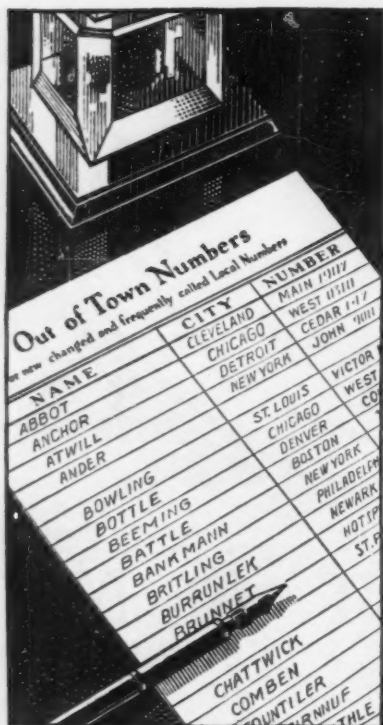 Out of Town Numbers
or new changed and frequently called Local Numbers
NAME CITY NUMBER
ABBOT CLEVELAND MAIN
ANCHOR CHICAGO WEST
ATWILL DETROIT CEDAR
ANDER NEW YORK JOHN
BOWLING ST. LOUIS VICTOR
BOTTLE CHICAGO WEST
BEEMING DENVER CO
BATTLE BOSTON
BANKMANN NEW YORK
BRITLING PHILADELPH
BURRUNLEK NEWARK
BRUNNET HOT SP
ST. P
CHATTWICK
COMBEN
OUNTILER
RNNUF
THLE